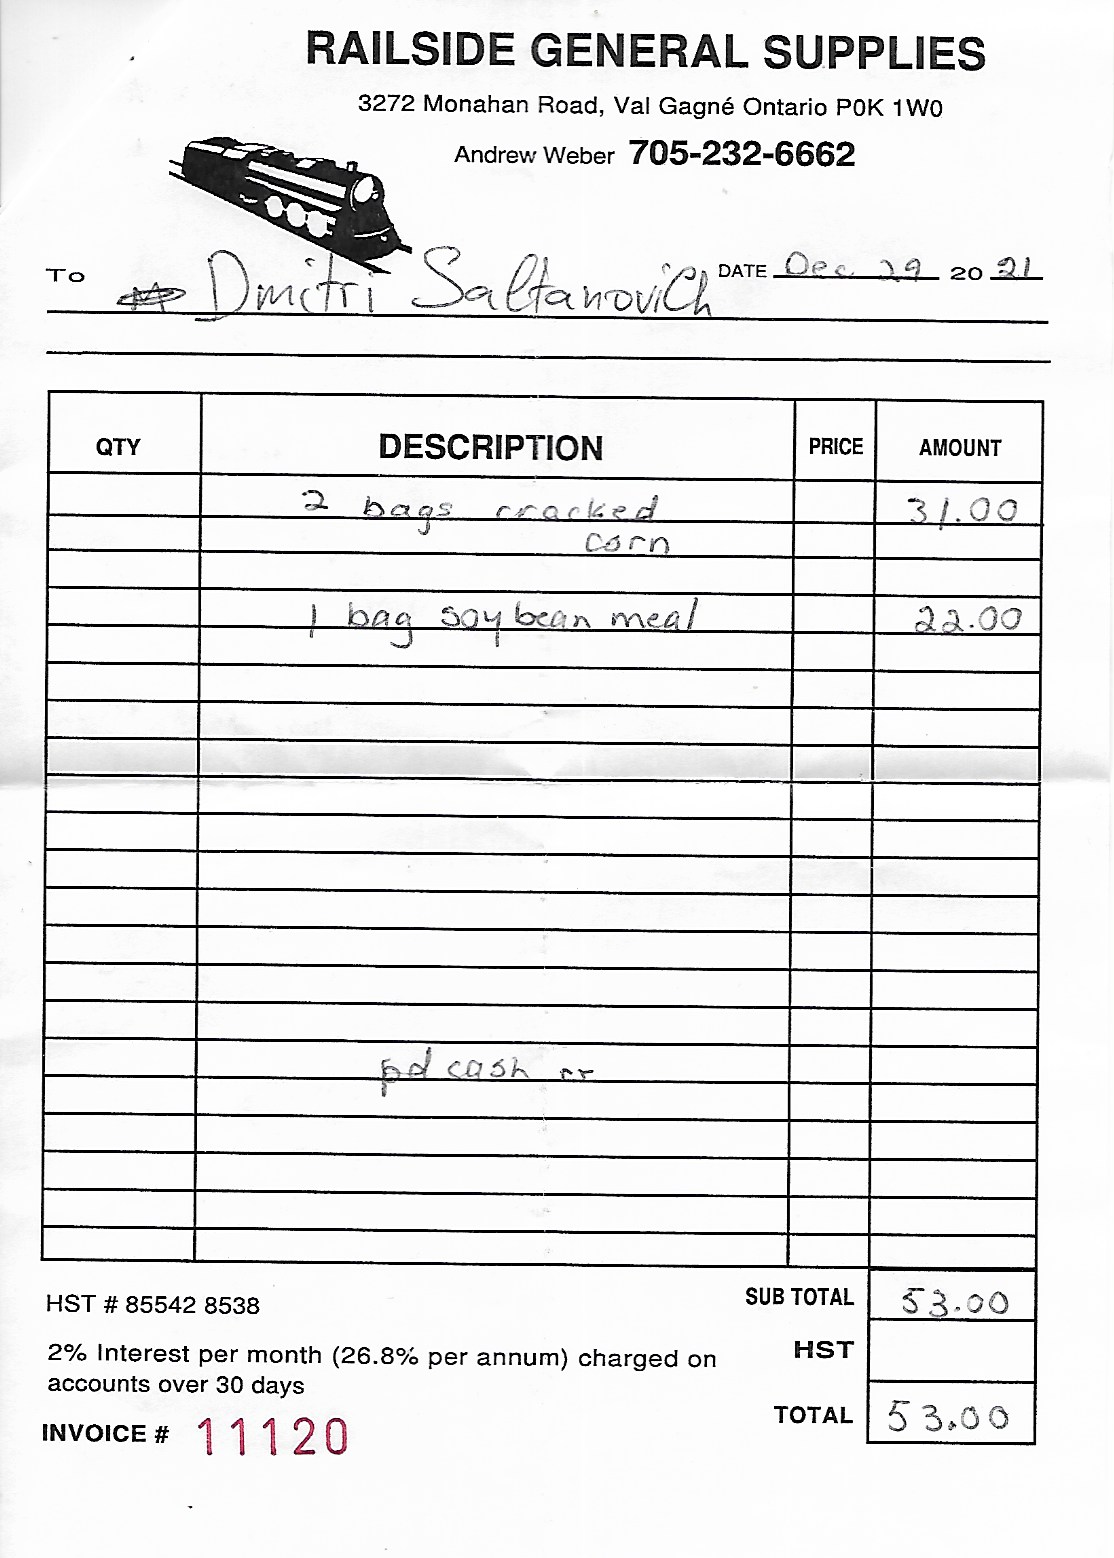 RAILSIDE GENERAL SUPPLIES
3272 Monahan Road, Val Gagné Ontario P0K 1W0
Andrew Weber 705-232-6662
To Dmitri Saltanovich DATE Dec 29 20 21
QTY DESCRIPTION PRICE AMOUNT
2 bags cracked 31.00
corn
1 bag soybean meal 22.00
pd cash
HST # 85542 8538 SUB TOTAL 53.00
2% Interest per month (26.8% per annum) charged on HST
accounts over 30 days
INVOICE # 11120 TOTAL 53.00